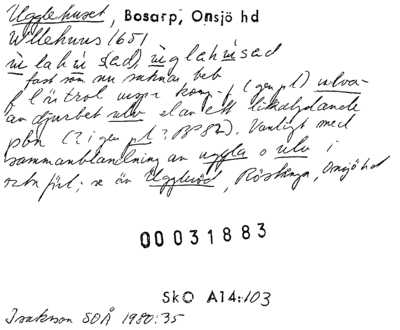 Ugglehuset, Bosarp, Onsjö hd
Wllehuus 1651
ùlahùsad, ùglahùsad
fast som nu saknar beb
f l är trol urspr komp f (gen pl) ulva-
an djurbet ulv el an ett likalydande
pbn (? i gen pl ? BP 82). Vanligt med
sammanblandning an uggla o ulv i
ortn förl; se än Uggleröd, Röstånga, Onsjö hd
00031883
SkO A14:103
Isaksson SOÅ 1980:35